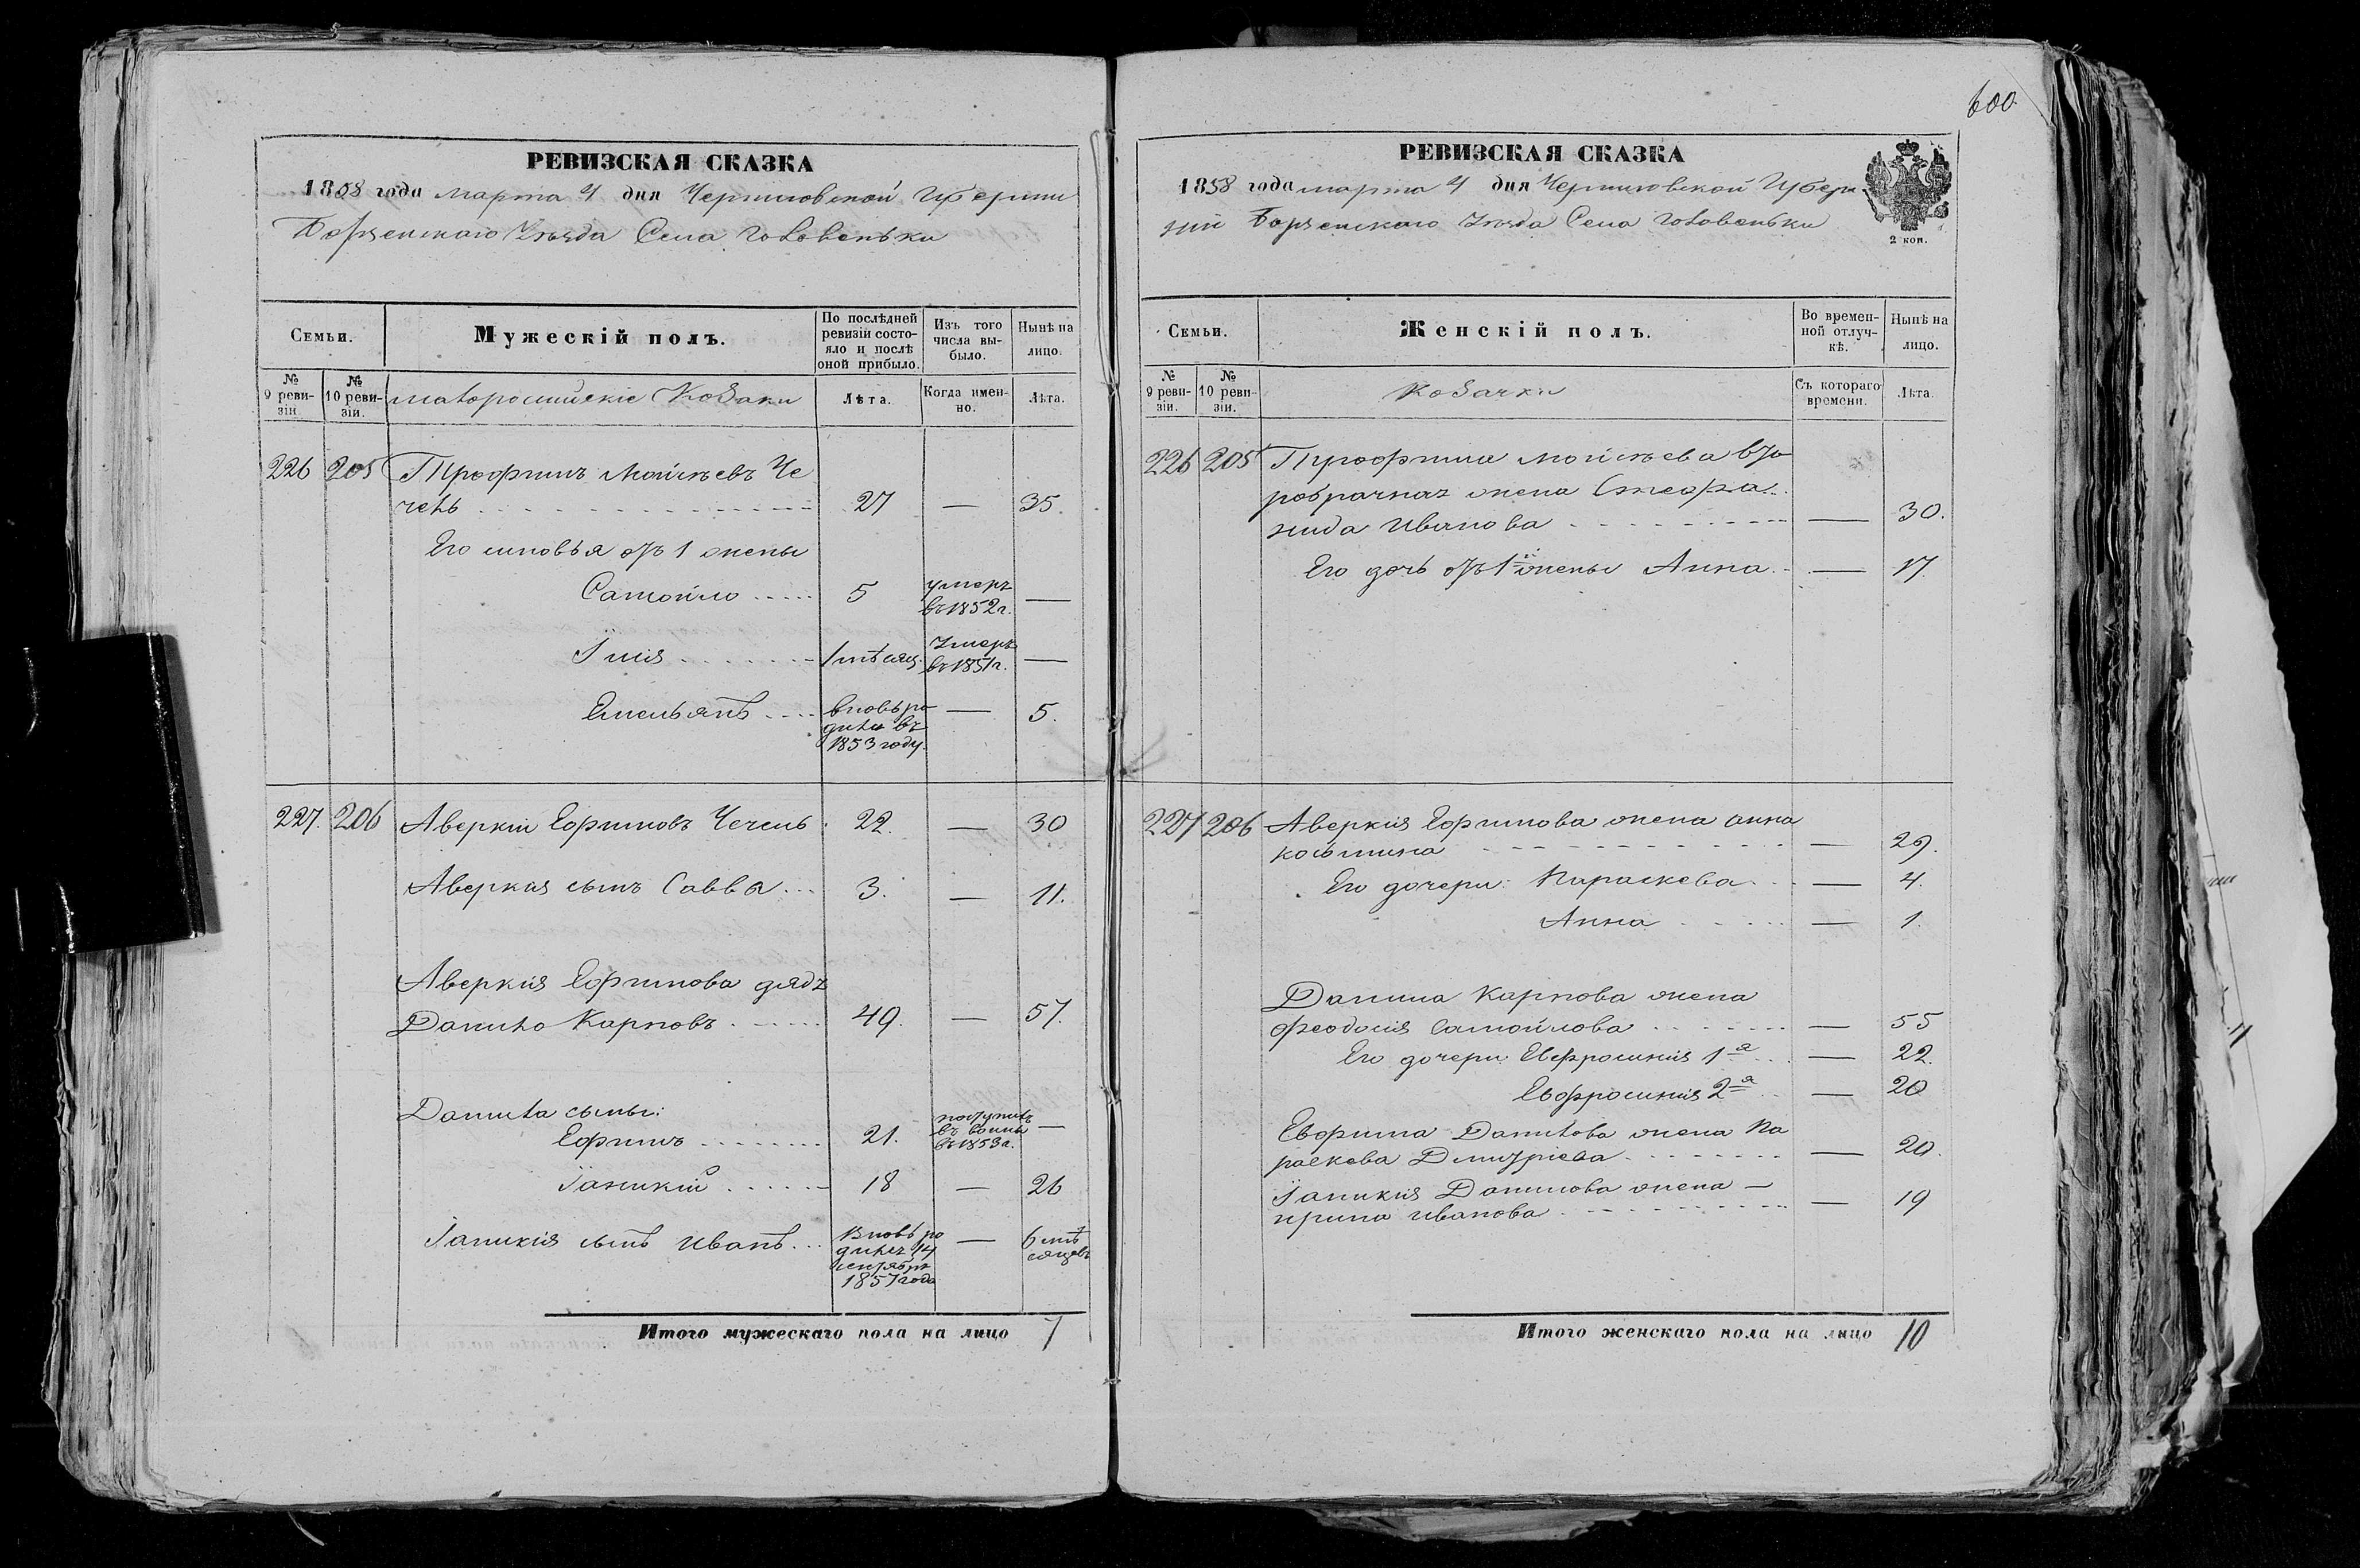 600
РЕВИЗСКАЯ СКАЗКА
1858 года марта 4 дня Черниговской Губернии
Борзенскаго Уѣзда Села Головеньки
Семьи.
Мужескій полъ.
По послѣдней ревизіи состояло и послѣ оной прибыло.
Изъ того числа выбыло.
Нынѣ на лицо.
№ 9 ревизіи.
№ 10 ревизіи.
малоросийскіе Козаки
Лѣта.
Когда именно.
Лѣта.
226 205 Трофимъ Мойсѣевъ Че
чель 27 — 35.
Его сыновья отъ 1 жены
Самойло 5 умеръ въ 1852 г. —
Илія 1 мѣсяц. Умеръ въ 1851 г. —
Емельянъ вновь ро
дился въ — 5.
1853 году.
227. 206 Аверкій Ефимовъ Чечель 22. — 30
Аверкія сынъ Савва 3. — 11.
Аверкія Ефимова дядя
Данило Карповъ 49. — 57.
Данила сыны:
Ефимъ 21. поступилъ въ 1853 г. —
Іаникій 18 — 26
Іаникія сынъ Иванъ Вновь ро
дился 14 — 6 мѣ
сентября сяцевъ
1857 года
Итого мужескаго пола на лицо 7
РЕВИЗСКАЯ СКАЗКА
1858 года марта 4 дня Черниговской Губер
ніи Борзенскаго Уѣзда Села Головеньки
2 коп.
Семьи.
Женскій полъ.
Во временной отлучкѣ.
Нынѣ на лицо.
№ 9 ревизіи.
№ 10 ревизіи.
Козачки
Съ котораго времени.
Лѣта.
226 205 Трофима Мойсѣева вто
робрачная жена Стефа
нида Иванова — 30.
Его дочь отъ 1й жены Анна — 17
227 206 Аверкія Ефимова жена Анна
Косьмина — 29.
Его дочери: Параскева — 4.
Анна — 1.
Данила Карпова жена
Феодосія Самойлова — 55
Его дочери Евфросинія 1я — 22.
Евфросинія 2я — 20
Евфима Данилова жена Па
раскева Дмитріева — 29.
Іаникія Данилова жена —
Ирина Иванова — 19
Итого женскаго пола на лицо 10